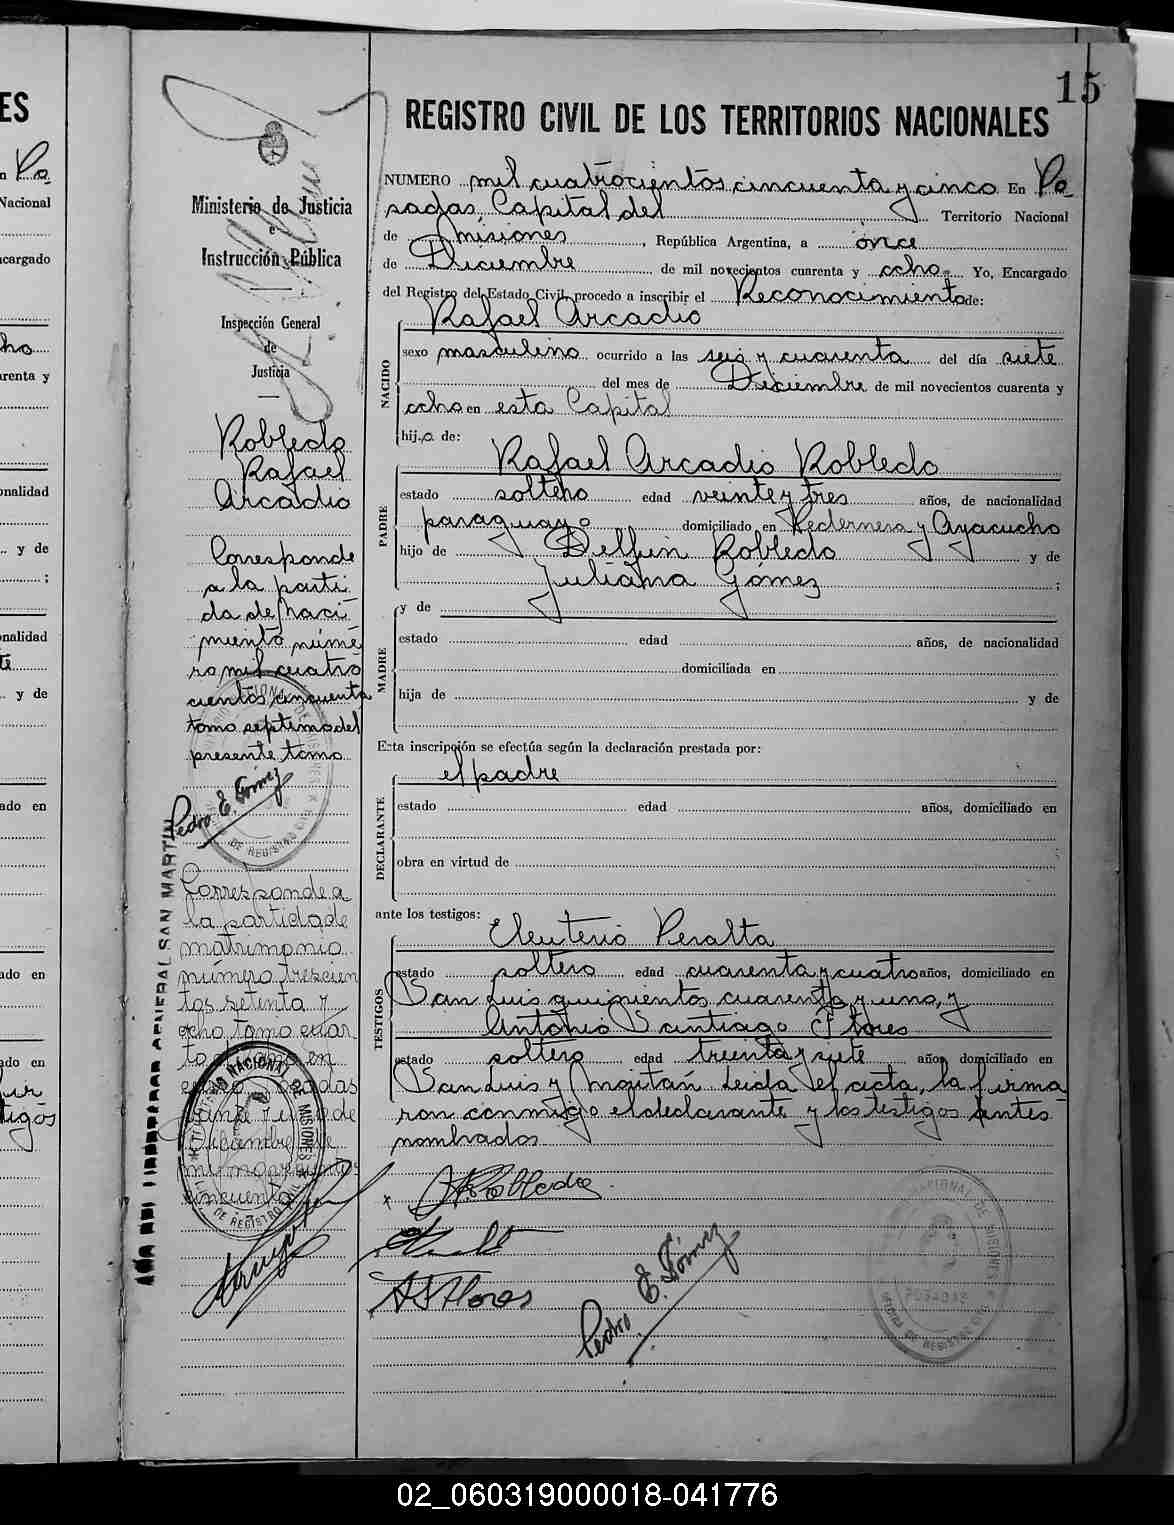 15
REGISTRO CIVIL DE LOS TERRITORIOS NACIONALES
NUMERO mil cuatrocientos cincuenta y cinco En Po
sadas, Capital del Territorio Nacional
de Misiones, República Argentina, a once
de Diciembre de mil novecientos cuarenta y ocho. Yo, Encargado
del Registro del Estado Civil, procedo a inscribir el Reconocimiento de:
Rafael Arcadio
NACIDO
sexo masculino ocurrido a las seis y cuarenta del día siete
del mes de Diciembre de mil novecientos cuarenta y
ocho en esta Capital
hijo de:
Rafael Arcadio Robledo
PADRE
estado soltero edad veinte y tres años, de nacionalidad
paraguayo domiciliado en Pedernera y Ayacucho
hijo de Delfin Robledo y de
Juliana Gómez ;
MADRE
y de
estado edad años, de nacionalidad
domiciliada en
hija de y de
Esta inscripción se efectúa según la declaración prestada por:
el padre
DECLARANTE
estado edad años, domiciliado en
obra en virtud de
ante los testigos:
Eleuterio Peralta
TESTIGOS
estado soltero edad cuarenta y cuatro años, domiciliado en
San Luis quinientos cuarenta y uno, y
Antonio Santiago Flores
estado soltero edad treinta y siete años, domiciliado en
San Luis y Moitán Leida el acta, la firma
ron conmigo el declarante y los testigos antes
nombrados
Robledo
A S Flores
Pedro E. Gómez
Ministerio de Justicia
e
Instrucción Pública
Inspección General
de
Justicia
Robledo
Rafael
Arcadio
Corresponde
a la parti
da de Naci
miento núme
ro mil cuatro
cientos cincuenta
tomo septimo del
presente tomo
Pedro E. Gómez
AÑO DEL LIBERTADOR GENERAL SAN MARTIN
Corresponde a
la partida de
matrimonio
número trescien
tos setenta y
ocho tomo cuar
to
de
Diciembre de
mil novecientos
cincuenta
NACIONAL DE MISIONES
OFICINA DE REGISTRO CIVIL
POSADAS
ES
Po
Nacional
cargado
ho
renta y
onalidad
y de
;
onalidad
y de
ado en
ado en
ado en
tigos
02_060319000018-041776